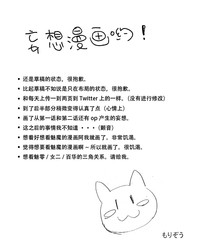 妄想漫画哟！
・还是草稿的状态，很抱歉。
・比起草稿不如说是只在布局的状态，很抱歉。
・和每天上传一到两页到Twitter上的一样。（没有进行修改）
・到了后半部分稍微变得认真了点（心情上）
・画了从第一话和第二话还有op产生的妄想。
・这之后的事情我不知道・・・（颤音）
・想要看好想看魅魔的漫画阿我就画了，非常饥渴。
・觉得想要看魅魔的漫画啊 ～ 所以就画了。很饥渴。
・想看魅零 / 女二 / 百华的三角关系。请给我。
もりぞう